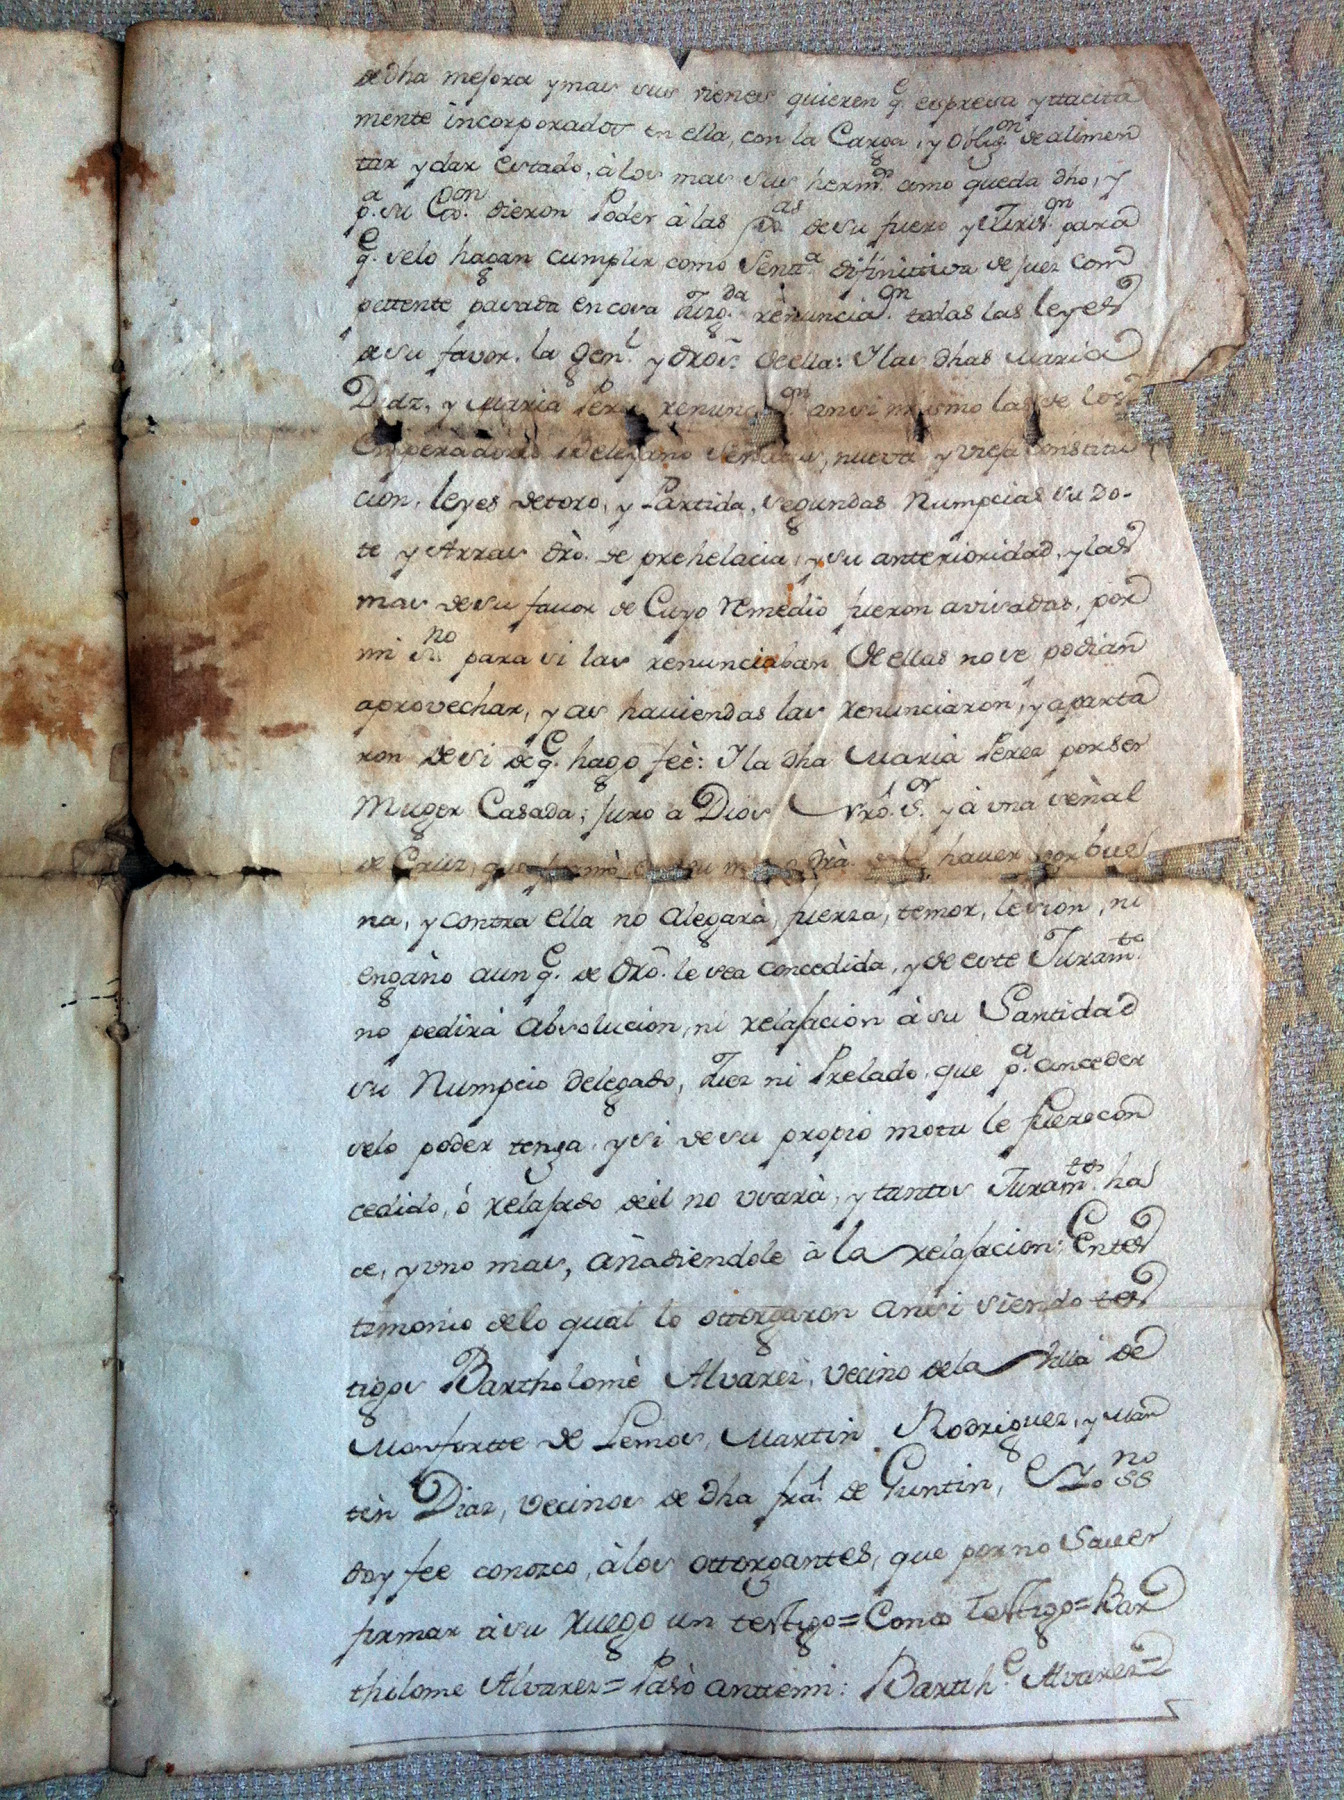 de dha mejora y mas sus vienes quieren q.e espresa y ttacita
mente incorporados en ella, con la Carga, y Oblig.on de alimen
tar y dar estado, à los mas sus herm.os como queda dho, y
p.a su Ex.on dieron Poder à las de su fuero y Juris.on para
q.e se lo hagan cumplir como Sent.a difinitiva de juez com
pettente pasada en cosa Juzg.da renuncia.on todas las leyes
de su favor, la gen.l y dros. de ella: Y las dhas Maria
Diaz, y Maria Perez renuncia.on ansi mismo las de los
Emperadores Veleyano Senatus, nueva y vieja constitu
cion, leyes de toro, y Partida, segundas Numpcias su Do-
te y Arras dro. de prehelacia, y su anterioridad, y las
mas de su favor de Cuyo remedio fueron avisadas, por
mi ss.no para si las renunciaban de ellas no se podian
aprovechar, y as haviendas las renunciaron, y aparta
ron de si de q.e hago feè: Y la dha Maria Perez por ser
Muger Casada; juro a Dios Nrô. S.or y à una señal
de Cruz, que formò en su m drâ. hauer por bue
na, y contra ella no alegara, fuerza, temor, lesion, ni
engaño aun q.e de drô. le sea concedida, y de este Juram.to
no pedirà absolucion, ni relajacion à su Santidad
su Numpcio delegado, Juez ni Prelado, que p.a conceder
selo poder tenga, y si de su propio motu le fuere con
cedido, ó relajado deèl no usarà, y tantos Juram.tos ha
ce, y uno mas, añadiendole à la relajacion: En tes
timonio delo qual lo ottorgaron ansi siendo tes
tigos Bartholomè Alvarez, vecino dela Villa de
Monfortte de Lemos, Martin Rodriguez, y Mar
tin Diaz, vecinos de dha fra.l de Guntin, E Yo ss.no
doy fee conozco, à los ottorgantes, que por no Saver
firmar à su ruego un testigo = Como Testigo = Bar
tholome Alvarez = Pasò antemi: Barth.e Alvarez =